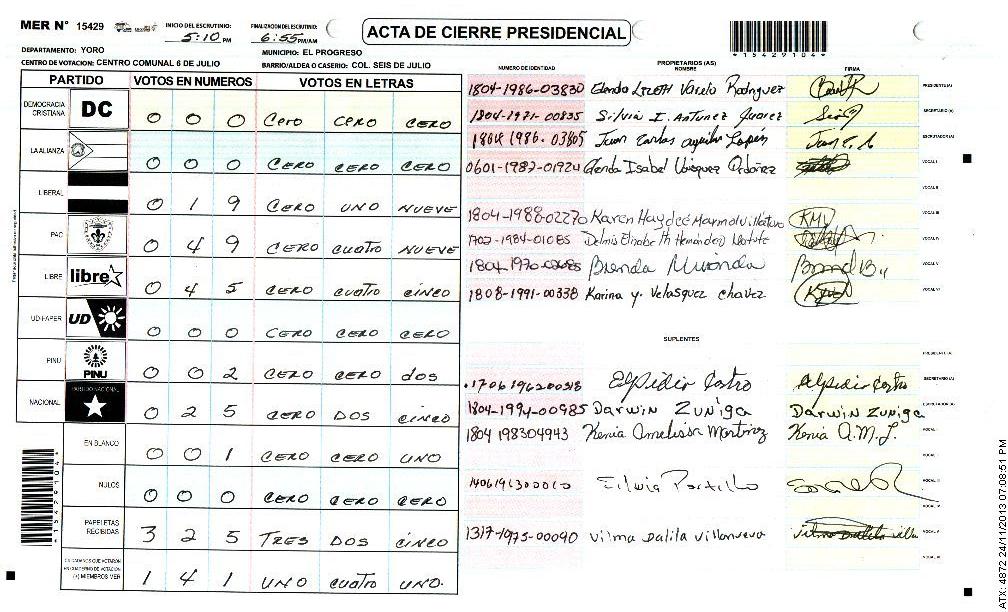 MER N° 15429
INICIO DEL ESCRUTINIO: 5:10 PM
FINALIZACION DEL ESCRUTINIO: 6:55 PM/AM
ACTA DE CIERRE PRESIDENCIAL
*15429104*
DEPARTAMENTO: YORO
MUNICIPIO: EL PROGRESO
CENTRO DE VOTACION: CENTRO COMUNAL 6 DE JULIO
BARRIO/ALDEA O CASERIO: COL. SEIS DE JULIO
PARTIDO VOTOS EN NUMEROS VOTOS EN LETRAS
DEMOCRACIA CRISTIANA DC 0 0 0 Cero CERO CERO
LA ALIANZA 0 0 0 CERO CERO CERO
LIBERAL 0 1 9 CERO UNO NUEVE
PAC 0 4 9 CERO CUATRO NUEVE
LIBRE libre 0 4 5 CERO CUATRO CINCO
UD FAPER UD 0 0 0 CERO CERO CERO
PINU PINU 0 0 2 CERO CERO DOS
NACIONAL PARTIDO NACIONAL 0 2 5 CERO DOS CINCO
EN BLANCO 0 0 1 CERO CERO UNO
NULOS 0 0 0 CERO CERO CERO
PAPELETAS RECIBIDAS 3 2 5 TRES DOS CINCO
CIUDADANOS QUE VOTARON EN CUADERNO DE VOTACION (+) MIEMBROS MER 1 4 1 UNO CUATRO UNO.
NUMERO DE IDENTIDAD
PROPIETARIOS (AS)
NOMBRE
FIRMA
1804-1986-03830 Glenda Lizeth Varela Rodriguez PRESIDENTE (A)
1804-1971-00835 Silvia I. Antunez Juarez SECRETARIO (A)
1804 1986. 03805 Juan Carlos aguilar Lopéz ESCRUTADOR (A)
0601-1987-01924 Glenda Isabel Vásquez Ordoñez VOCAL I
VOCAL II
1804-1988-02270 Karen Haydeé Marmol Villatoro KMV VOCAL III
1702-1984-01085 Delmis Elizabeth Hernández VOCAL IV
1804 1970 Brenda Miranda VOCAL V
1808-1991-00338 Karina y. Velasquez chavez VOCAL VI
SUPLENTES
PRESIDENTE (A)
1706 1962 00318 Elpidio Castro Elpidio Castro SECRETARIO (A)
1804-1994-00985 Darwin Zuniga Darwin Zuniga ESCRUTADOR (A)
1804 198304943 Kenia Amelissa Martinez Kenia A.M.L. VOCAL I
1406191300010 Silvia Portillo VOCAL III
VOCAL IV
1317-1975-00090 Vilma Dalila Villanueva VOCAL V
VOCAL VI
*15429104*
ATX: 4872 24/11/2013 07:08:51 PM